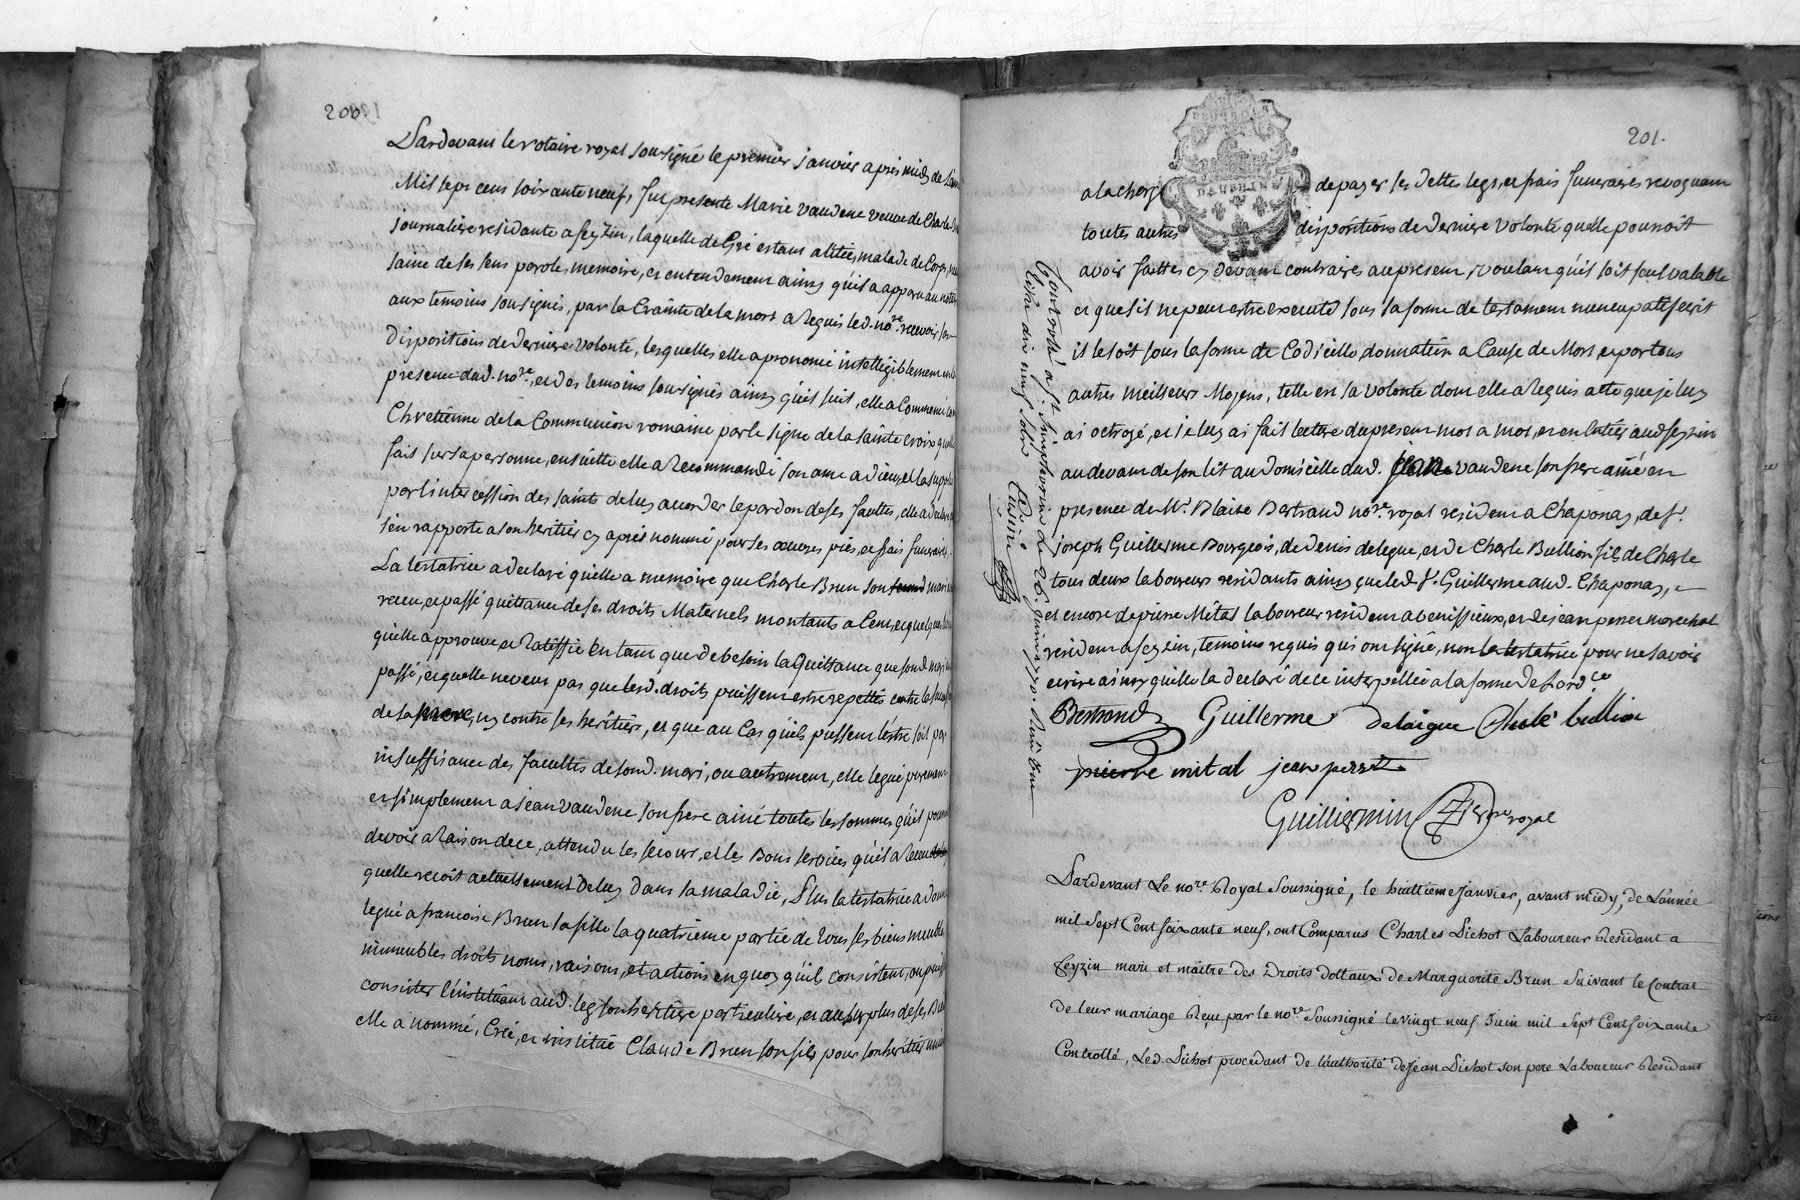 200
Pardevant le notaire royal soussigné le premier janvier apres midy de l'an
Mil sept cens soixante neuf, fut presente Marie Vaudene veuve de Charle
journaliere residante a feyzin, laquelle de gré estant alitée, malade de corps,
saine de ses sens parole, memoire, et entendement ainsy qu'il a apparu au
aux temoins soussignés, par la crainte de la mort a requis led. nore. recevoir
dispositions de derniere volonté, lesquelles elle a prononcé intelligiblement
presence dud. nore., et des temoins soussignés ainsy qu'il suit, elle a commencé
Chretienne de la Communion romaine par le signe de la sainte croix
fait sur sa personne, ensuitte elle a recommandé son ame a dieu, et la supplié
par l'intercession des saints de luy accorder le pardon de ses fautes, elle a declaré
s'en rapporte a son heritier cy aprés nommé pour ses oeuvres pies, et frais funeraires,
La testatrice a declaré qu'elle a memoire que Charle Brun son second mari
receu, et passé quittance de ses droits Maternels montants a Cent, et quelques
qu'elle approuve et Ratiffie En tant que de besoin la Quittance que sond. mari
passé, et quelle ne veut pas que lesd. droits puissent estre repettés contre
de sa mere, ny contre ses heritiers, et que au Cas qu'ils pussent l'estre soit par
insuffisance des facultés de sond. mari, ou autrement, elle legue purement
et simplement a jean vaudene son frere ainé toutes les sommes qu'il
devoir a Raison de ce, attendu les secours, et les Bons services qu'il a
quelle recoit actuellement de luy dans sa maladie, Plus la testatrice a donné
legué a francoise Brun sa fille la quatrieme partie de tous ses biens meubles
immeubles droits noms, raisons, et actions en quoy qu'ils consistent, ou puissent
consister l'instituant aud. leg son heritiere particuliere, et au surplus de ses Biens
elle a nommé, Créé, et institué Claude Brun son fils pour son heritier
201.
a la charge de payer ses dettes legs, et frais funeraires revoquant
toutes autres dispositions de derniere volonté qu'elle pourroit
avoir faittes cy devant contraires au present, voulant qu'il soit seul valable
et que s'il ne peut estre executé sous sa forme de testament nuncupatif ecrit
il le soit sous la forme de Codicille donnation a Cause de Mort et par tous
autres meilleurs Moyens, telle est sa volonté dont elle a requis acte que je luy
ai octroyé, et je luy ai fait lecture du present mot a mot, et en entier aud. feyzin
au devant de son lit au domicille dud. jean vaudene son frere ainé en
presence de Mr. Blaise Bertrand nore. royal resident a Chaponay, de sr.
joseph Guillerme Bourgeois, de denis delegue, et de Charle Bullion fils de Charle
tous deux laboureurs residants ainsy que led. sr. Guillerme aud. Chaponay,
et encore de pierre Mital laboureur resident a venissieux, et de jean perret marechal
resident a feyzin, temoins requis qui ont signé, non la testatrice pour ne savoir
ecrire ainsy qu'elle l'a declaré de ce interpellée a la forme de l'ordce
Bertrand Guillerme delaigue Charle bullion
pierre mital jean perret
Guilliermin nre royal
Controllé a st. simphorien le 26. janvier 1770.
Pardevant Le nore Royal Soussigné, le huittieme Janvier, avant midy, de L'année
mil Sept Cent soixante neuf, ont Comparus Charles Dichot Laboureur Residant a
feyzin mari et maitre des Droits dottaux de Marguerite Brun Suivant le Contrat
de leur mariage Reçu par le nore Soussigné le vingt neuf Juin mil Sept Cent soixante
Controllé, Led. Dichot procedant de l'authorité de Jean Dichot son pere Laboureur Residant